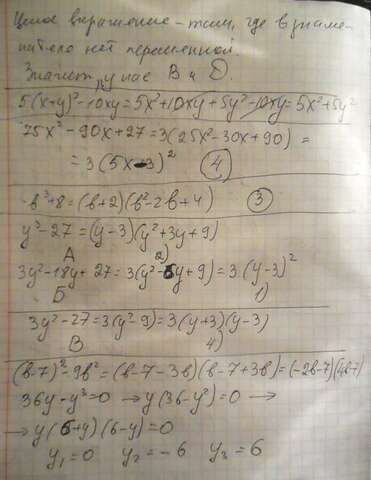 Целое выражение - там, где в знаме-
нателе нет переменной.
Значит, у нас В и D.
5(x+y)²-10xy=5x²+10xy+5y²-10xy=5x²+5y²
75x³-90x+27=3(25x²-30x+90)=
=3(5x-3)² (4)
b³+8=(b+2)(b²-2b+4) (3)
y³-27=(y-3)(y²+3y+9)
А 2)
3y²-18y+27=3(y²-6y+9)=3(y-3)²
Б 1)
3y²-27=3(y²-9)=3(y+3)(y-3)
В 4)
(b-7)²-9b²=(b-7-3b)(b-7+3b)=(-2b-7)(4b-7)
36y-y³=0 →y(36-y²)=0 →
→y(6+y)(6-y)=0
y₁=0 y₂=-6 y₃=6